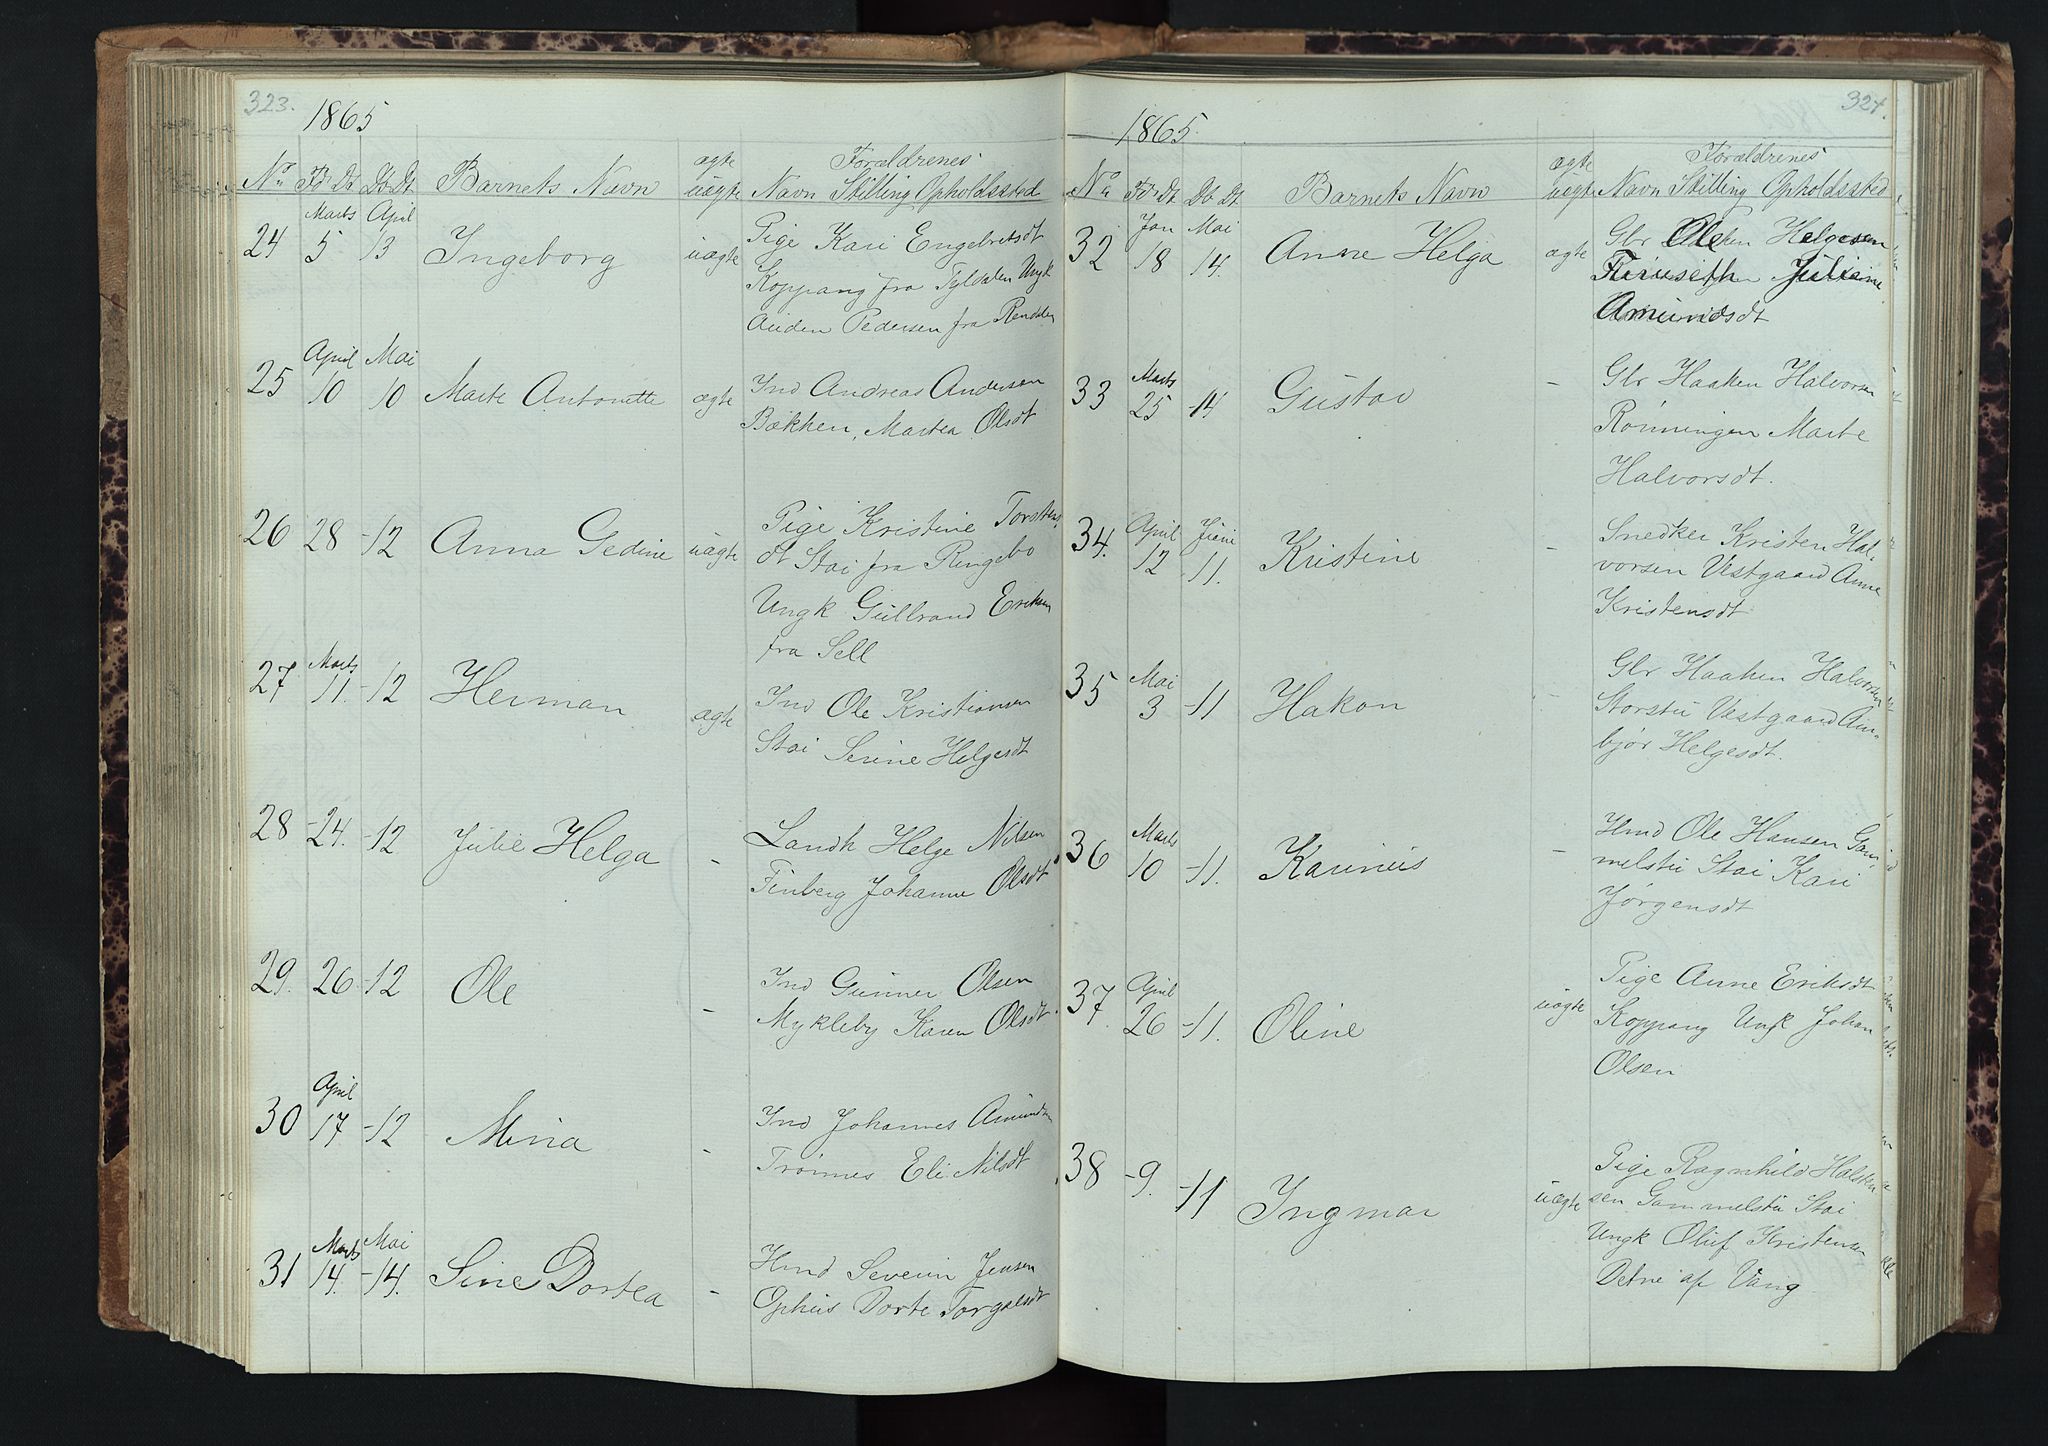 323.
1865
Forældrenes
No Fd Dt Db Dt Barnets Navn ægte uægte Navn Stilling Opholdssted
Marts April
24 5 13 Ingeborg uægte Pige Kari Engebretsdt
Koppang fra Tyldalen Ungk
Auden Pedersen fra Rendalen
April Mai
25 10 10 Marte Antonette ægte Ind Andreas Andersen
Bækken, Martea Olsdt
26 28 -12 Anna Gedine uægte Pige Kristine Torstens
dt Stai fra Ringebo
Ungk Gulbrand Eriksen
fra Sell
Marts
27 11. -12 Herman ægte Ind Ole Kristiansen
Stai Serine Helgesdt
28 -24. -12 Julie Helga - Landh Helge Nilsen
Finberg Johanne Olsdt
29. 26 -12 Ole - Ind Gunner Olsen
Mykleby Karen Olsdt.
April
30 17 -12 Mina - Ind Johannes Amundsen
Trønnes Eli Nilsdt
Marts Mai
31 14. -14. Sine Dortea - Hmd Severin Jensen
Ophus Dorte Torgalsdt
324.
1865.
Forældrenes
No Fd Dt Db Dt Barnets Navn ægte uægte Navn Stilling Opholdssted
Jan Mai
32 18 14. Anne Helga ægte Gbr Ole Helgesen
Juliane
Amundsdt
Marts
33 25 -14 Gustav - Gbr Haaken Halvorsen
Rønningen Marte
Halvorsdt.
April Juni
34. 12 -11. Kristine - Snedker Kristen Hal-
vorsen Vestgaard Anne
Kristensdt
Mai
35 3 -11 Hakon - Gbr Haaken Halvorsen
Storstu Vestgaard Am-
bjør Helgesdt.
Marts
36 10 -11. Karinus - Hmd Ole Hansen Gam-
melstu Stai Kari
Jørgensdt
April
37 26 -11. Oline uægte Pige Anne Eriksdt
Koppang Ungk Johan
Olsen
38 -9. -11 Ingmar uægte Pige Ragnhild Halsten
sen Gammelstu Stai
Ungk Oluf Kristensen
Detne af Vang